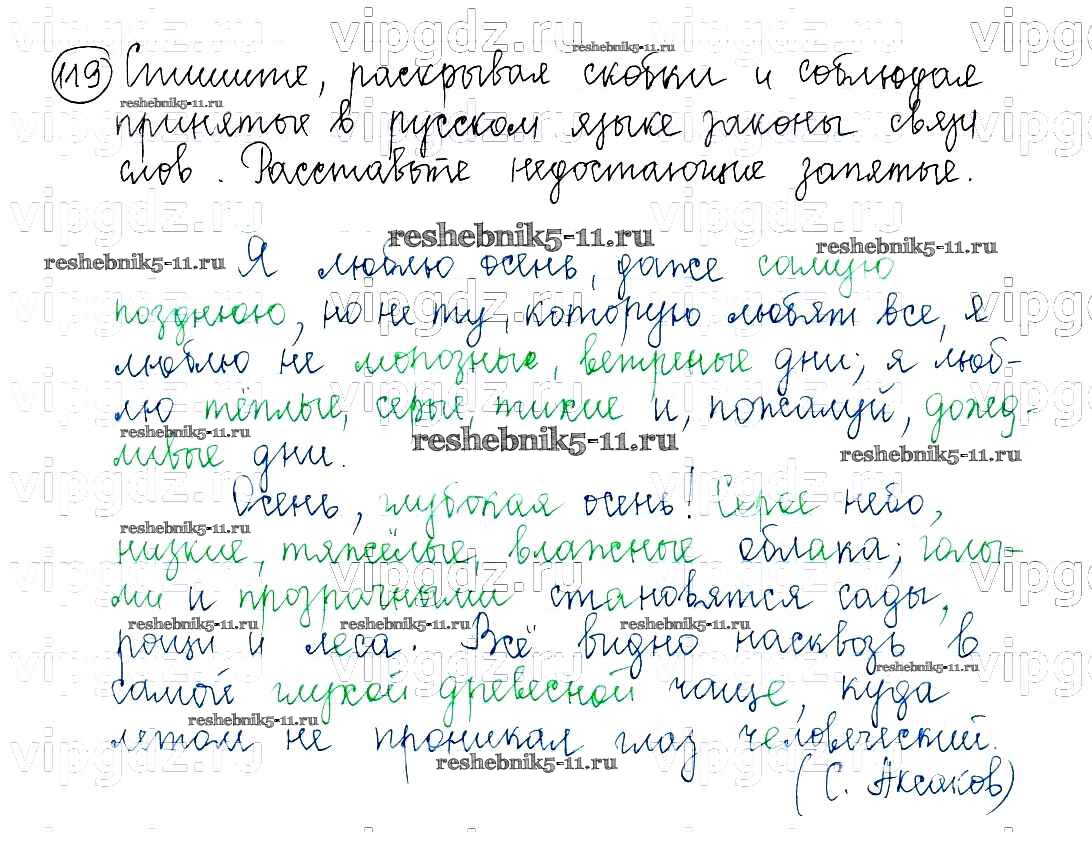 119 Спишите, раскрывая скобки и соблюдая
принятые в русском языке законы связи
слов. Расставьте недостающие запятые.
Я люблю осень, даже самую
позднюю, но не ту, которую любят все, я
люблю не морозные, ветреные дни; я люб-
лю тёплые, серые, тихие и, пожалуй, дожд-
ливые дни.
Осень, глубокая осень! Серое небо,
низкие, тяжёлые, влажные облака; голы-
ми и прозрачными становятся сады,
рощи и леса. Всё видно насквозь в
самой глухой древесной чаще, куда
летом не проникал глаз человеческий.
(С. Аксаков)
reshebnik5-11.ru
vipgdz.ru